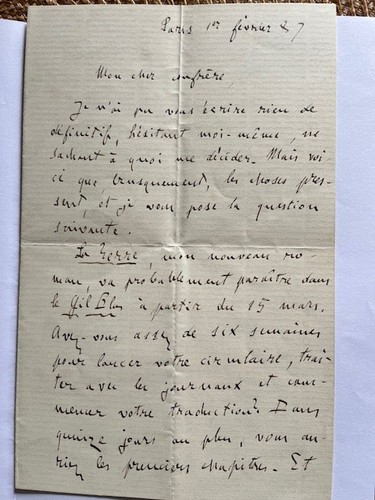 Paris 1er février 87
Mon cher confrère,
Je n'ai pu vous écrire rien de
définitif, hésitant moi-même, ne
sachant à quoi me décider. Mais voi
ci que, brusquement, les choses pres-
sent, et je vous pose la question
suivante.
La Terre, mon nouveau ro-
man, va probablement paraître dans
le Gil Blas à partir du 15 mars.
Avez-vous assez de six semaines
pour lancer votre circulaire, trai-
ter avec les journaux et com-
mencer votre traduction? Dans
quinze jours au plus, vous au-
riez les premiers chapitres. Et